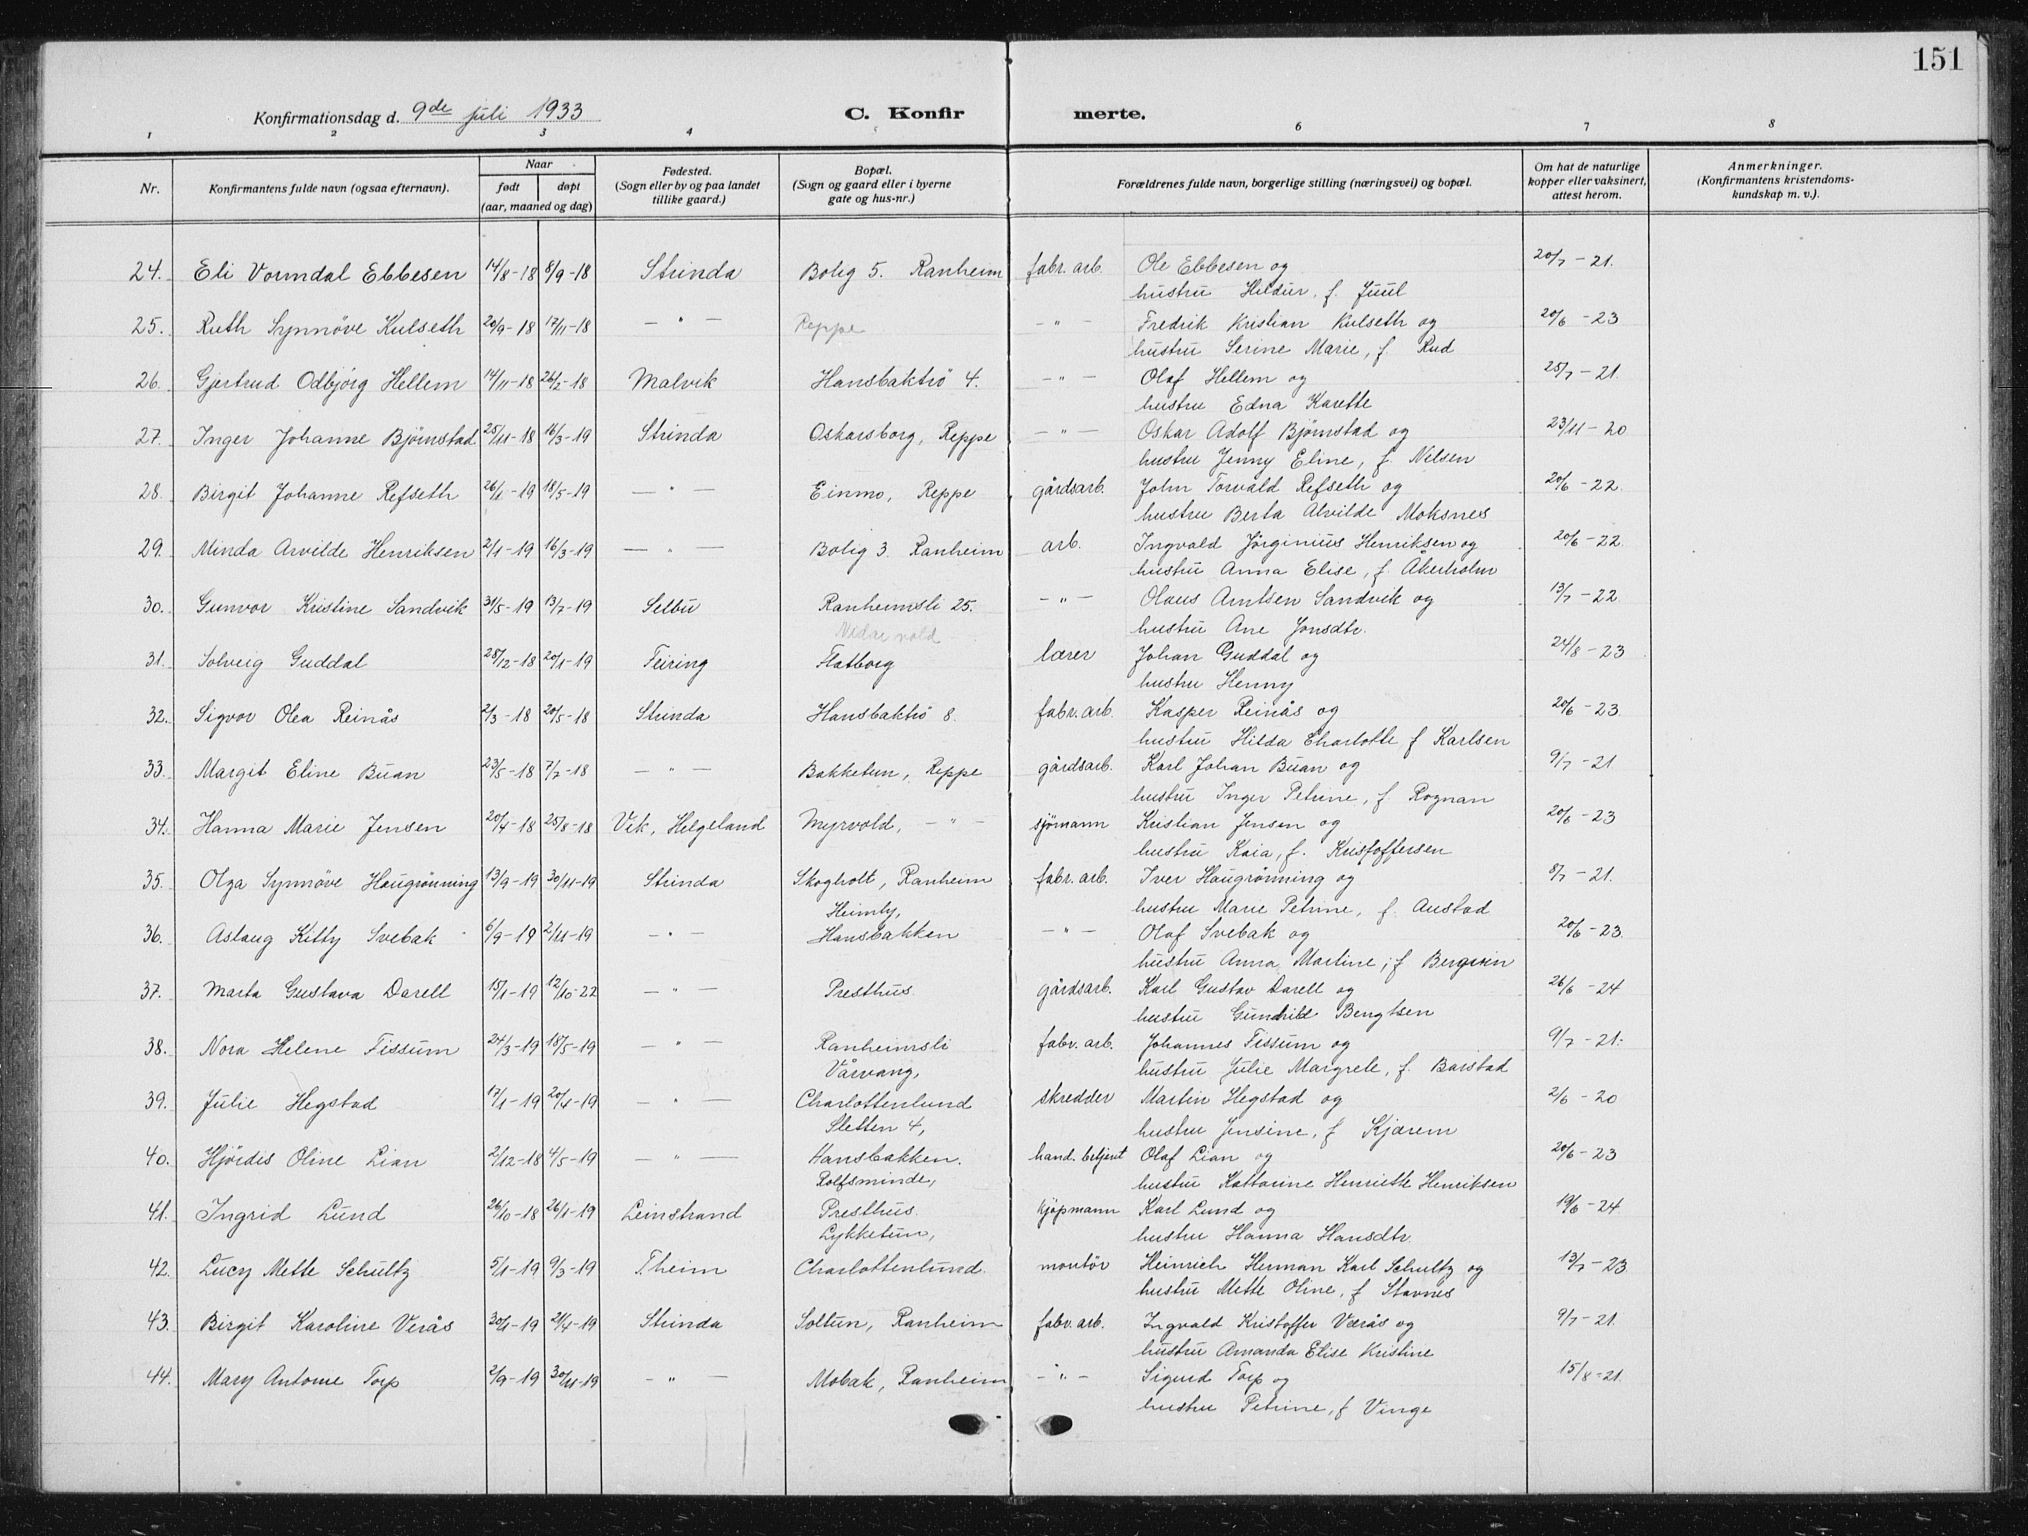 151
Konfirmationsdag d. 9de juli 1933
C. Konfir merte.
1 2 3 4 6 7 8
Nr.
Konfirmantens fulde navn (ogsaa efternavn).
Naar
født døpt
(aar, maaned og dag)
Fødested.
(Sogn eller by og paa landet
tillike gaard.)
Bopæl.
(Sogn og gaard eller i byerne
gate og hus-nr.)
Forældrenes fulde navn, borgerlige stilling (næringsvei) og bopæl.
Om hat de naturlige
kopper eller vaksinert,
attest herom.
Anmerkninger.
(Konfirmantens kristendoms-
kundskap m. v.).
24. Eli Vormdal Ebbesen 14/8-18 8/9-18 Strinda Bolig 5. Ranheim fabr. arb. Ole Ebbesen og 20/7-21.
hustru Hildur, f. Juul
25. Ruth Synnøve Kulseth 20/9-18 17/11-18 — " — Reppe — " — Fredrik Kristian Kulseth og 20/6-23
hustru Serine Marie, f. Rud
26. Gjertrud Odbjørg Hellem 14/11-18 26/2-18 Malvik Hansbaktrö 4. — " — Olaf Hellem og 25/7-21.
hustru Edna Karette
27. Inger Johanne Bjørnstad 25/11-18 16/3-19 Strinda Oskarsborg, Reppe — " — Oskar Adolf Bjørnstad og 23/11-20
hustru Jenny Eline, f. Nilsen
28. Birgit Johanne Refseth 26/1-19 18/5-19 — " — Einmo, Reppe gårdsarb. John Torvald Refseth og 20/6-22.
hustru Berta Alvilde Moksnes
29. Minda Arvilde Henriksen 2/1-19 16/3-19 — " — Bolig 3. Ranheim arb. Ingvald Jörginius Henriksen og 20/6-22.
hustru Anna Elise, f. Åkerholm
30. Gunvor Kristine Sandvik 31/5-19 13/7-19 Selbu Ranheimsli 25. — " — Olaus Arntsen Sandvik og 13/7-22.
hustru Ane Jonsdtr.
Nidarvold
31. Solveig Guddal 28/12-18 20/1-19 Feiring Flatborg lærer Johan Guddal og 24/8-23
hustru Henny
32. Sigvor Olea Reinås 2/3-18 20/5-18 Strinda Hansbaktrö 8. fabr. arb. Kasper Reinås og 20/6-23
hustru Hilda Charlotte f Karlsen
33. Margit Eline Buan 23/5-18 7/7-18 — " — Bakketun, Reppe gårdsarb. Karl Johan Buan og 9/7-21
hustru Inger Petrine, f. Rognan
34. Hanna Marie Jensen 20/4-18 25/8-18 Vik, Helgeland Myrvold, — " — sjömann Kristian Jensen og 20/6-23
hustru Kaia, f. Kristoffersen
35. Olga Synnöve Haugrönning 13/9-19 30/11-19 Strinda Skogholt, Ranheim fabr. arb. Iver Haugrönning og 8/7-21.
hustru Marie Petrine, f. Austad
Heimly,
36. Aslaug Kitty Svebak 6/9-19 2/11-19 — " — Hansbakken — " — Olaf Svebak og 20/6-23.
hustru Anna Martine, f Bergsvin
37. Marta Gustava Darell 15/1-19 12/10-22 — " — Presthus gårdsarb. Karl Gustav Darell og 26/6-24
hustru Gunhild Bengtsen
38. Nora Helene Fissum 24/3-19 18/5-19 — " — Ranheimsli fabr. arb. Johannes Fissum og 9/7-21.
hustru Julie Margrete, f. Barstad
Vårvang,
39. Julie Hegstad 17/1-19 20/4-19 — " — Charlottenlund skredder Martin Hegstad og 2/6-20
hustru Jensine, f Kjærem
Sletten 4,
40. Hjördis Oline Lian 2/12-18 4/5-19 — " — Hansbakken. hand. betjent Olaf Lian og 20/6-23
hustru Kattarine Henriette Henriksen
Rolfsminde,
41. Ingrid Lund 26/10-18 26/1-19 Leinstrand Presthus. kjöpmann Karl Lund og 19/6-24
hustru Hanna Hansdtr.
Lykketun,
42. Lucy Mette Schultz 5/1-19 9/3-19 T.heim Charlottenlund. montör Heinrich Herman Karl Schultz og 13/7-23
hustru Mette Oline, f Stavnes
43. Birgit Karoline Verås 30/1-19 21/4-19 Strinda Soltun, Ranheim fabr. arb. Ingvald Kristoffer Værås og 9/7-21.
hustru Amanda Elise Kristine
44. Mary Antonie Torp 2/9-19 30/11-19 — " — Mobak, Ranheim — " — Sigurd Torp og 15/8-21.
hustru Petrine, f Vinge